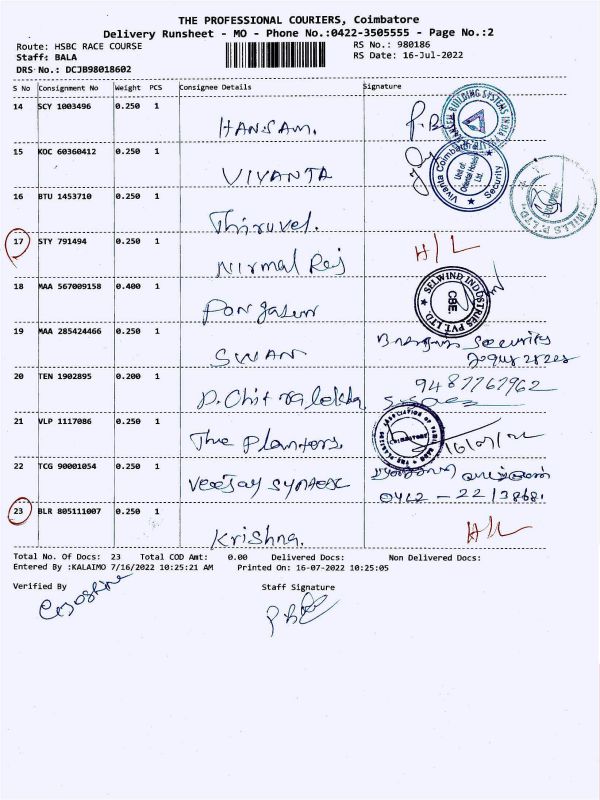 THE PROFESSIONAL COURIERS, Coimbatore
Delivery Runsheet - MO - Phone No.:0422-3505555 - Page No.:2
Route: HSBC RACE COURSE
RS No.: 980186
Staff: BALA
RS Date: 16-Jul-2022
DRS No.: DCJB98018602
S No Consignment No Weight PCS Consignee Details Signature
14 SCY 1003496 0.250 1
HANSAM.
15 KOC 60360412 0.250 1
VIVANTA
Vivanta Coimbatore
Unit of Oriental Hotels Ltd.
Security
16 BTU 1453710 0.250 1
Thiruvel.
MILLS P. LTD.
17 STY 791494 0.250 1 H/L
Nirmal Raj
18 MAA 567009158 0.400 1
SELWIND INDUSTRIES PVT. LTD.
CBE.
19 MAA 285424466 0.250 1
SWAN
Security
20 TEN 1902895 0.200 1
9487767962
D. Chitralekha
21 VLP 1117086 0.250 1
The Planters,
COIMBATORE
16/07/22
22 TCG 90001054 0.250 1
Veejay Syntex
0422-2213868.
23 BLR 805111007 0.250 1
H/L
Krishna.
Total No. Of Docs: 23 Total COD Amt: 0.00 Delivered Docs: Non Delivered Docs:
Entered By :KALAIMO 7/16/2022 10:25:21 AM Printed On: 16-07-2022 10:25:05
Verified By Staff Signature